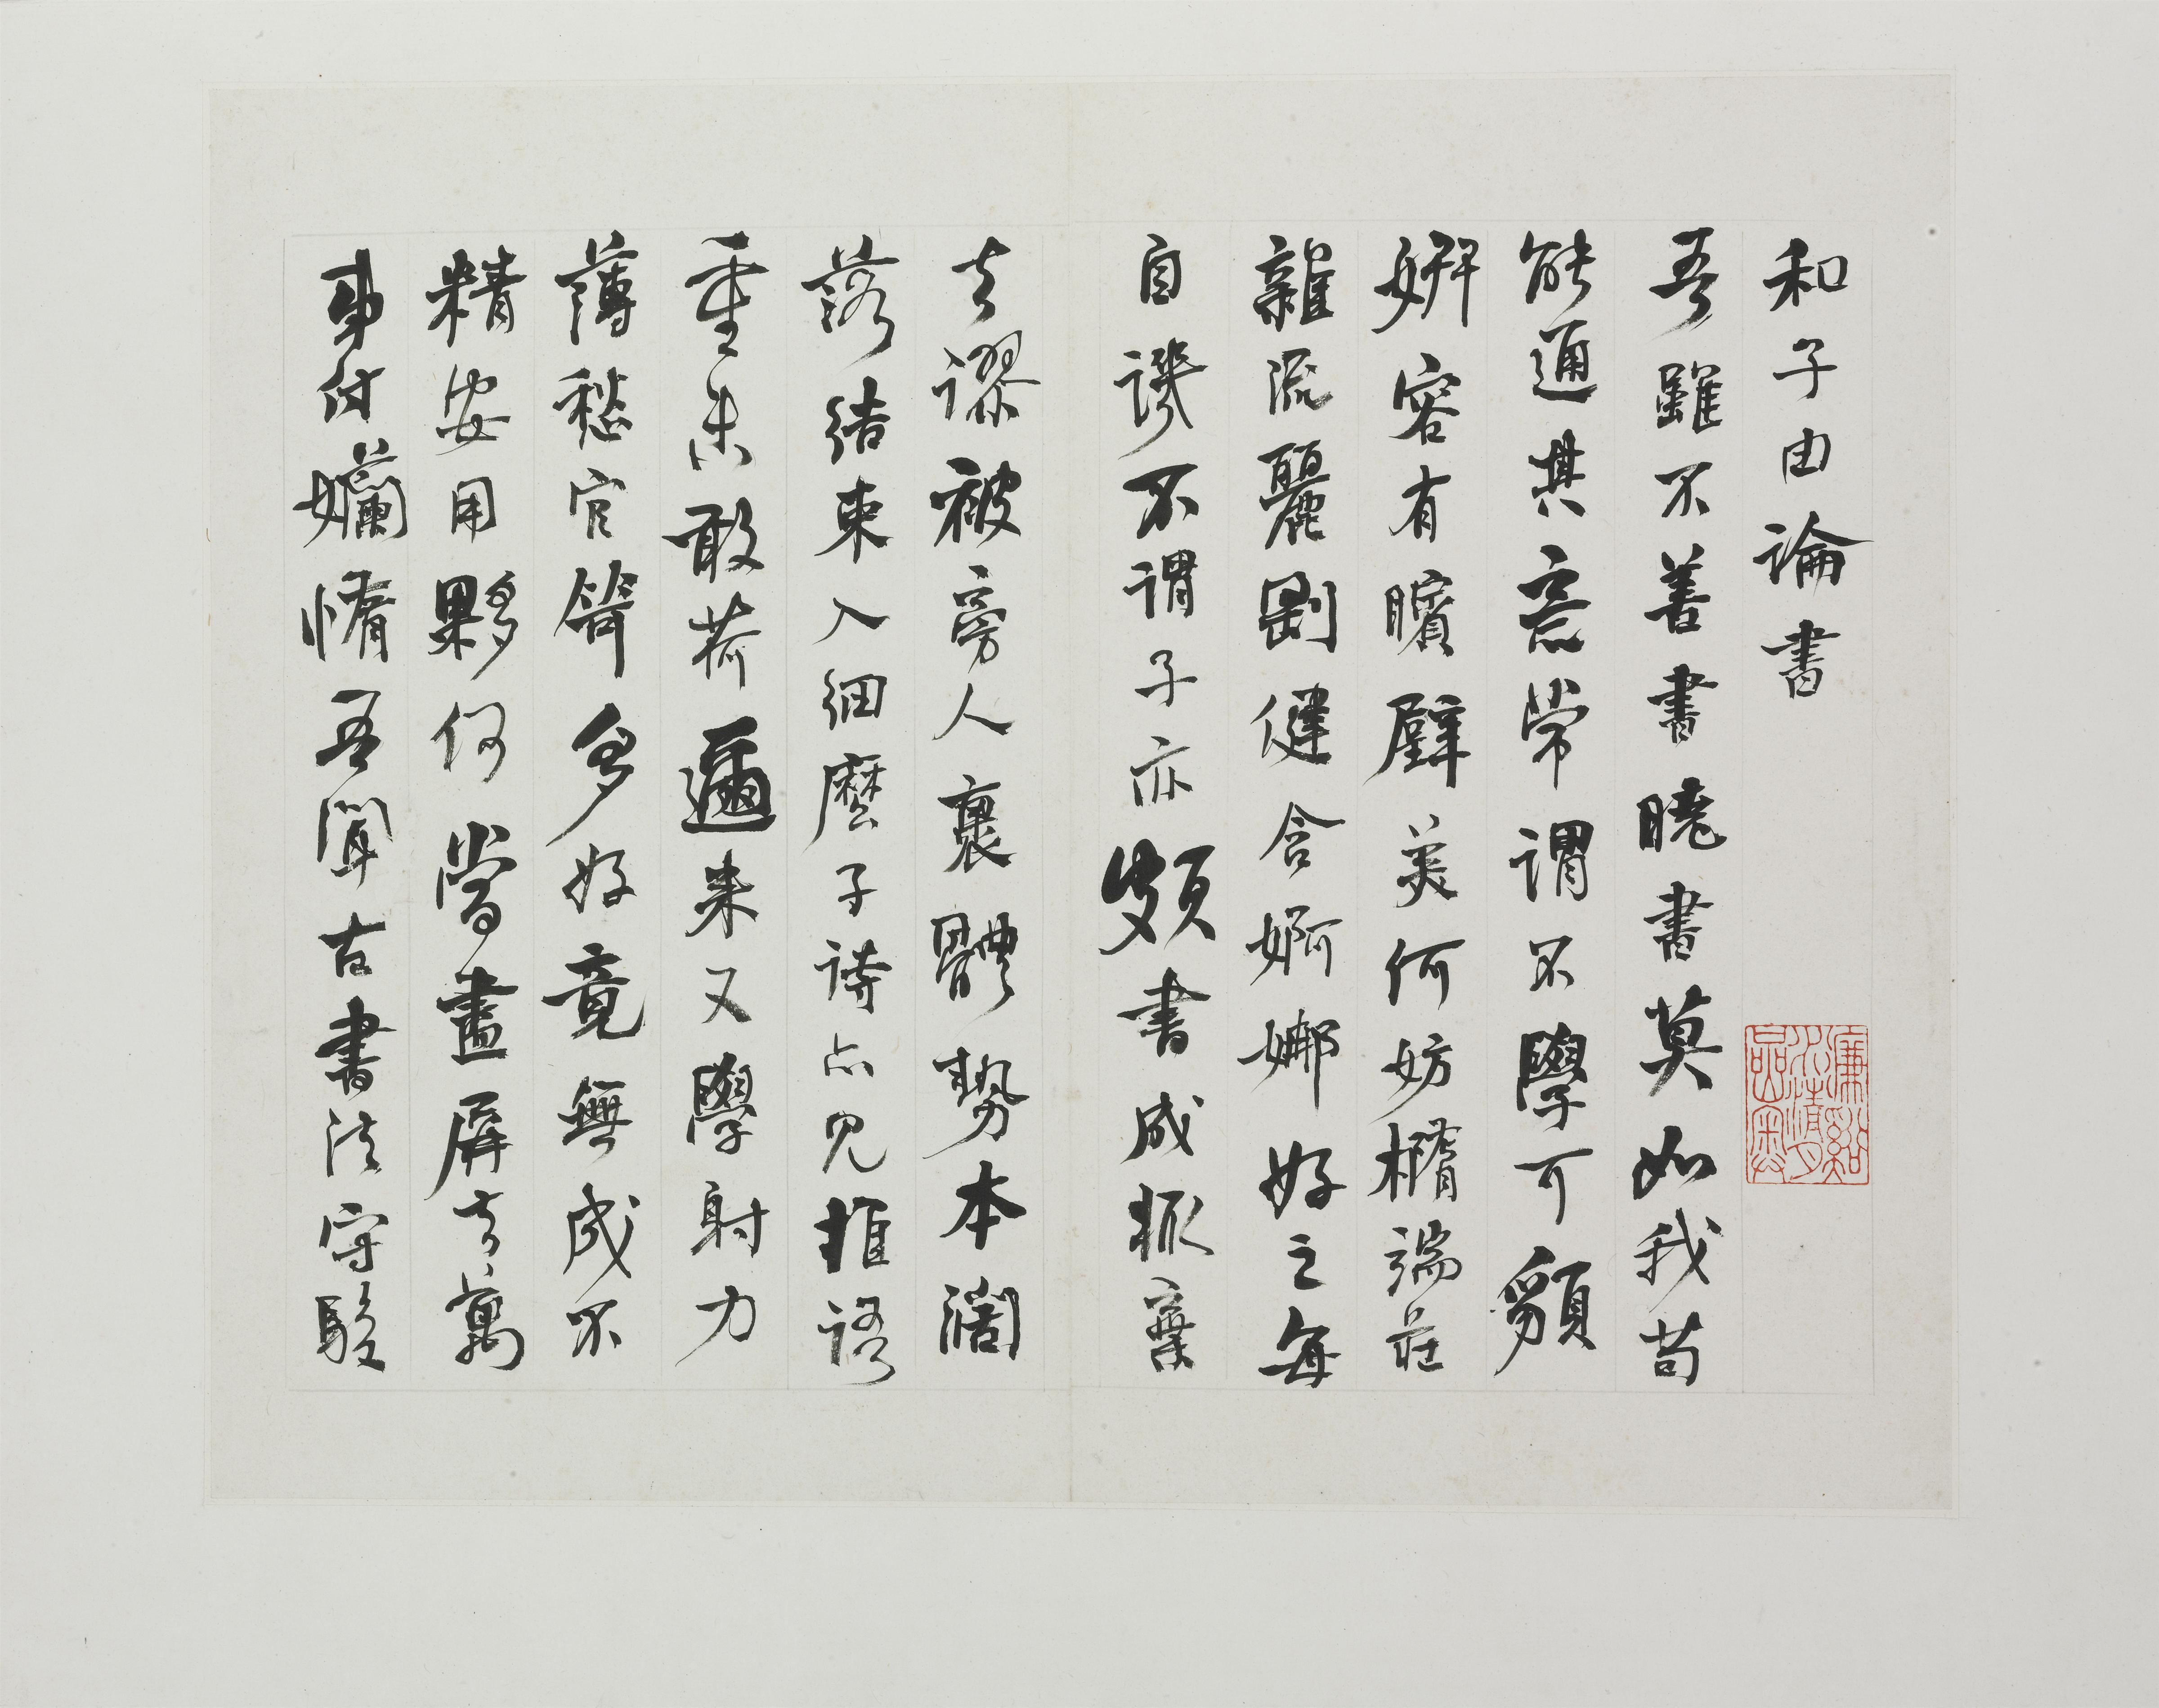 和子由論書
吾雖不善書曉書莫如我苟
能通其意常謂不學可䫉
妍容有矉璧美何妨橢端莊
雜流麗剛健含婀娜好之每
自譏不謂子亦頗書成輒棄
去謬被旁人裹體勢本闊
落結束入細麽子詩亦見推語
重未敢荷邇來又學射力
薄愁官笴多好竟無成不
精安用夥何當盡屏去萬
事付孏惰吾聞古書法守駿